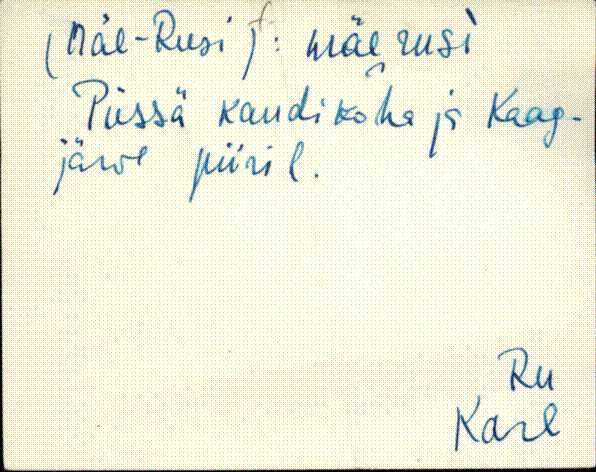 (Mäe-Rusi): mäe rusì
Püssä kandikoha ja Kaag-
järve piiril.
Ru
Karl